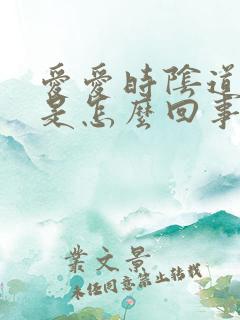 愛愛時陰道
是怎麼回事
業文景
未经同意禁止转载